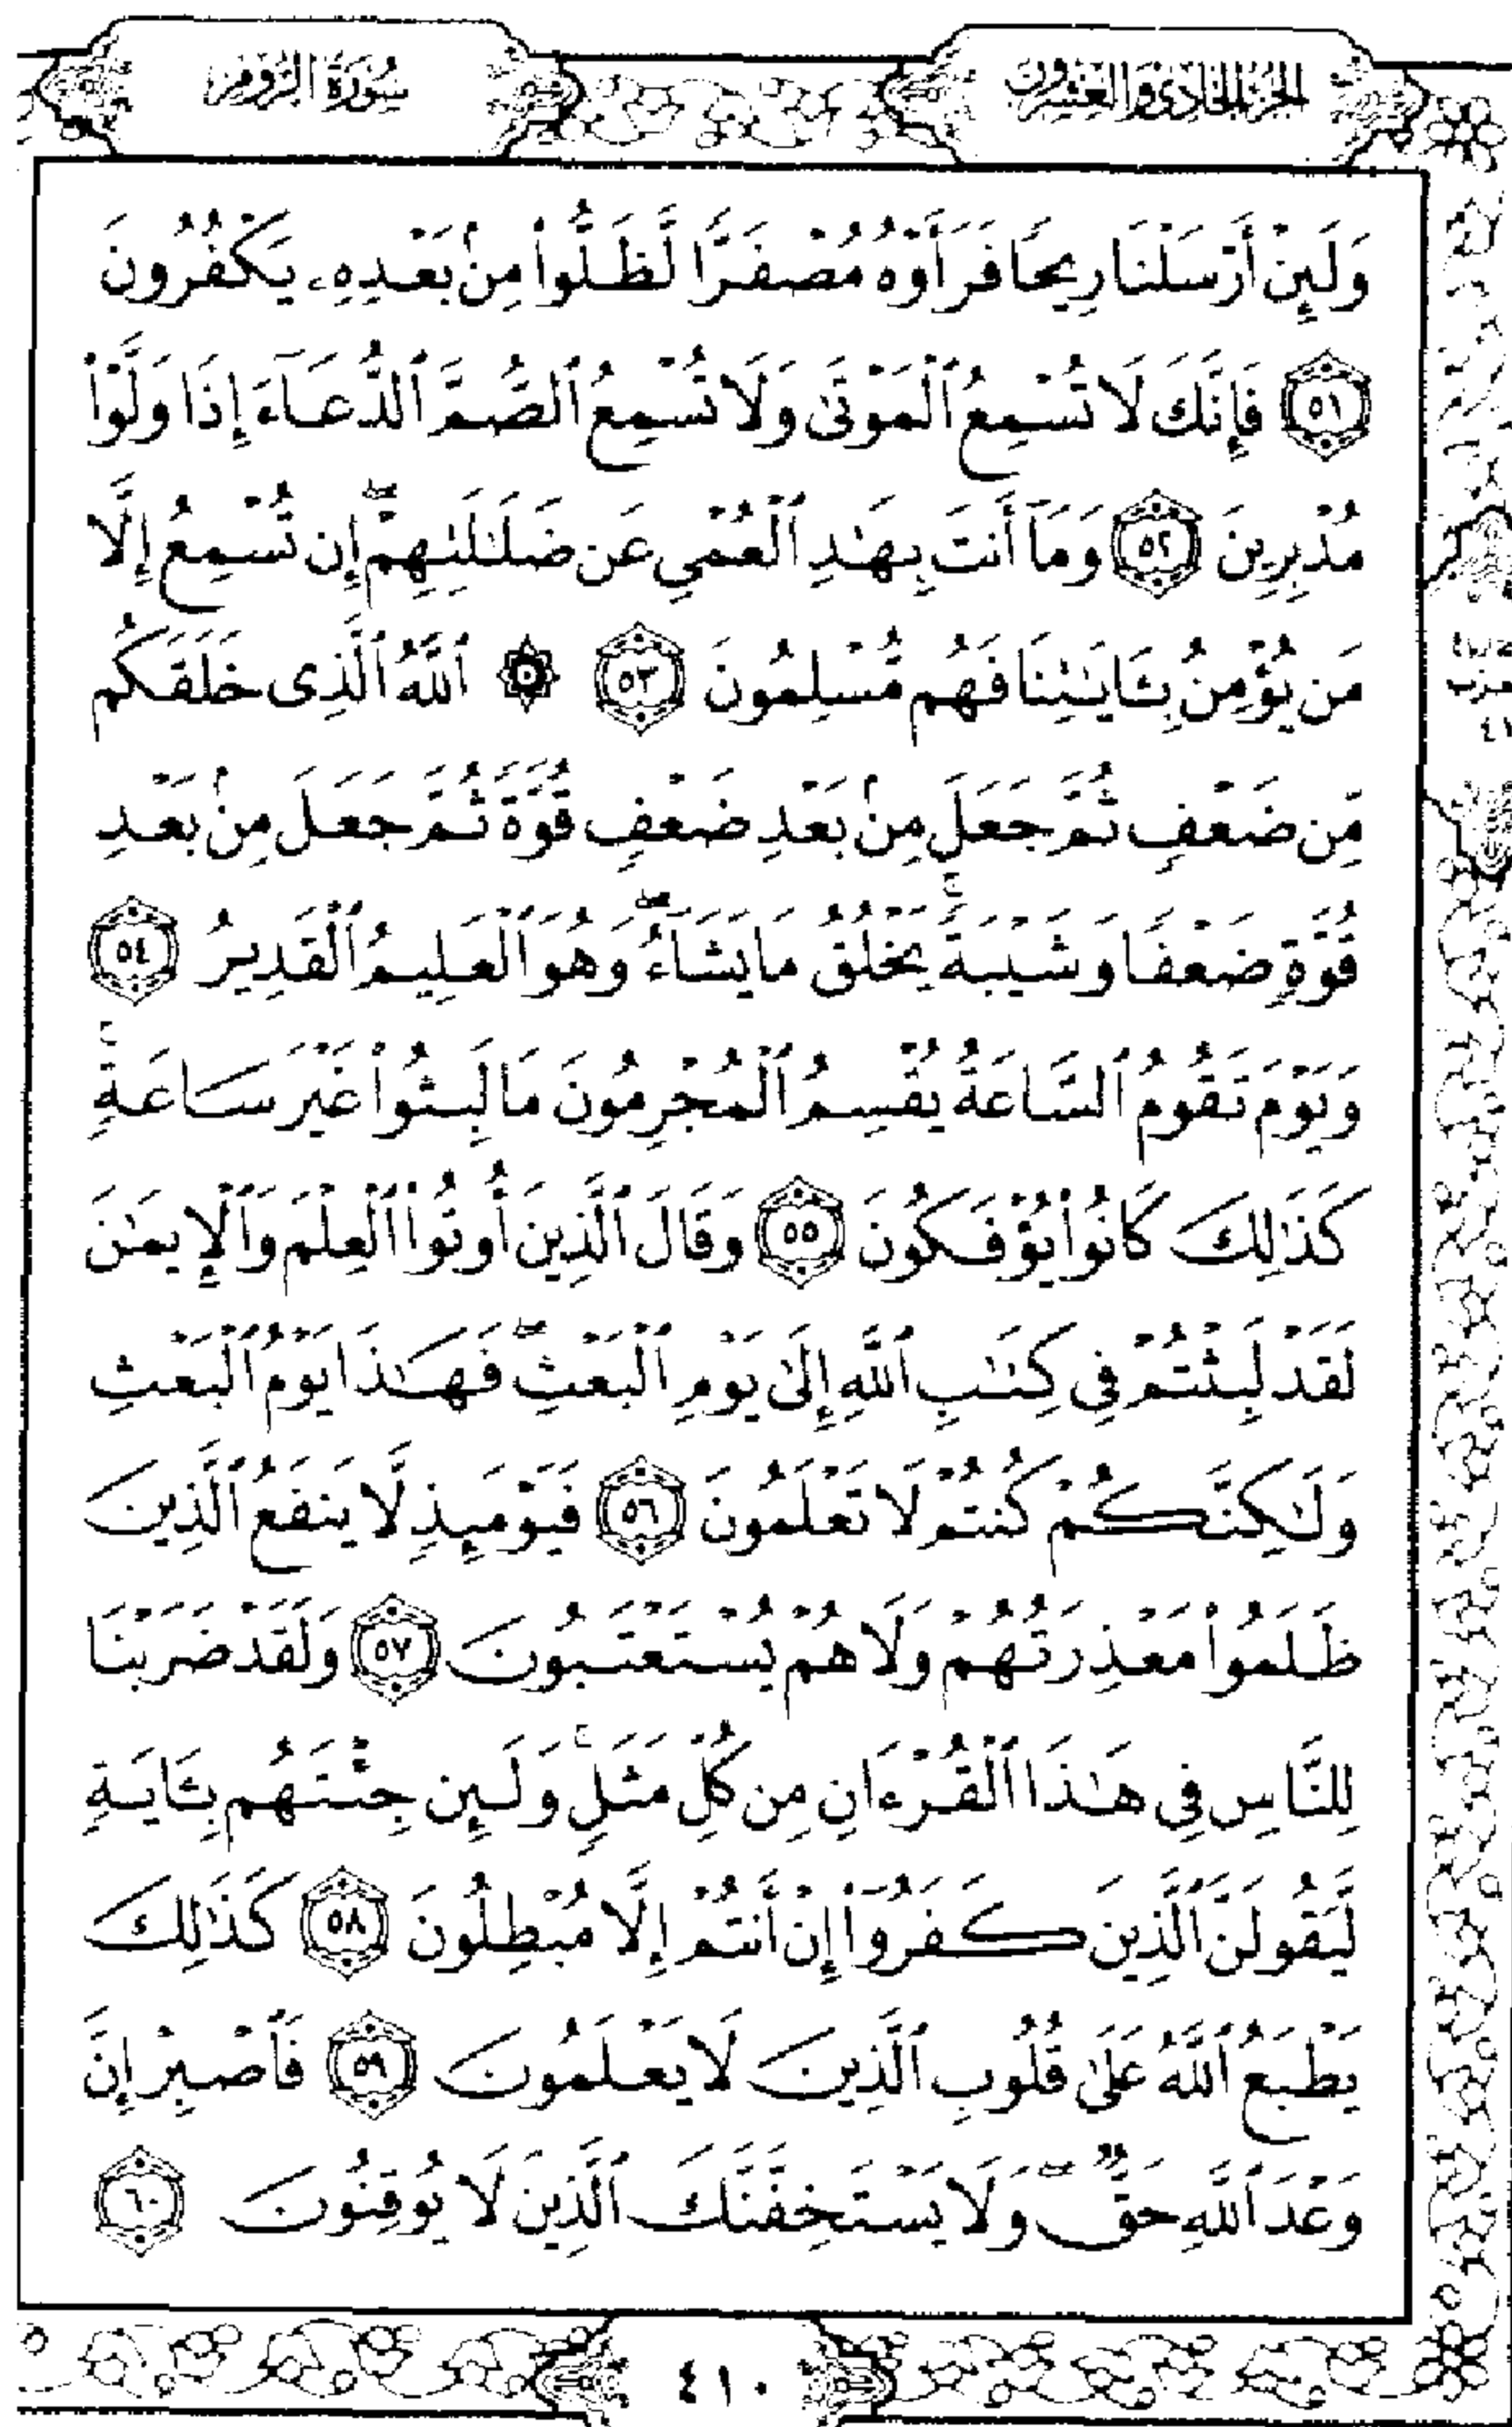 الجزء الحادي والعشرون
سورة الروم
وَلَئِنْ أَرْسَلْنَا رِيحًا فَرَأَوْهُ مُصْفَرًّا لَّظَلُّوا۟ مِنۢ بَعْدِهِۦ يَكْفُرُونَ
﴿٥١﴾ فَإِنَّكَ لَا تُسْمِعُ ٱلْمَوْتَىٰ وَلَا تُسْمِعُ ٱلصُّمَّ ٱلدُّعَآءَ إِذَا وَلَّوْا۟
مُدْبِرِينَ ﴿٥٢﴾ وَمَآ أَنتَ بِهَـٰدِ ٱلْعُمْىِ عَن ضَلَـٰلَتِهِمْ ۖ إِن تُسْمِعُ إِلَّا
مَن يُؤْمِنُ بِـَٔايَـٰتِنَا فَهُم مُّسْلِمُونَ ﴿٥٣﴾ ۞ ٱللَّهُ ٱلَّذِى خَلَقَكُم
مِّن ضَعْفٍ ثُمَّ جَعَلَ مِنۢ بَعْدِ ضَعْفٍ قُوَّةً ثُمَّ جَعَلَ مِنۢ بَعْدِ
قُوَّةٍ ضَعْفًا وَشَيْبَةً ۚ يَخْلُقُ مَا يَشَآءُ ۖ وَهُوَ ٱلْعَلِيمُ ٱلْقَدِيرُ ﴿٥٤﴾
وَيَوْمَ تَقُومُ ٱلسَّاعَةُ يُقْسِمُ ٱلْمُجْرِمُونَ مَا لَبِثُوا۟ غَيْرَ سَاعَةٍ ۚ
كَذَٰلِكَ كَانُوا۟ يُؤْفَكُونَ ﴿٥٥﴾ وَقَالَ ٱلَّذِينَ أُوتُوا۟ ٱلْعِلْمَ وَٱلْإِيمَـٰنَ
لَقَدْ لَبِثْتُمْ فِى كِتَـٰبِ ٱللَّهِ إِلَىٰ يَوْمِ ٱلْبَعْثِ ۖ فَهَـٰذَا يَوْمُ ٱلْبَعْثِ
وَلَـٰكِنَّكُمْ كُنتُمْ لَا تَعْلَمُونَ ﴿٥٦﴾ فَيَوْمَئِذٍ لَّا يَنفَعُ ٱلَّذِينَ
ظَلَمُوا۟ مَعْذِرَتُهُمْ وَلَا هُمْ يُسْتَعْتَبُونَ ﴿٥٧﴾ وَلَقَدْ ضَرَبْنَا
لِلنَّاسِ فِى هَـٰذَا ٱلْقُرْءَانِ مِن كُلِّ مَثَلٍ ۚ وَلَئِن جِئْتَهُم بِـَٔايَةٍ
لَّيَقُولَنَّ ٱلَّذِينَ كَفَرُوٓا۟ إِنْ أَنتُمْ إِلَّا مُبْطِلُونَ ﴿٥٨﴾ كَذَٰلِكَ
يَطْبَعُ ٱللَّهُ عَلَىٰ قُلُوبِ ٱلَّذِينَ لَا يَعْلَمُونَ ﴿٥٩﴾ فَٱصْبِرْ إِنَّ
وَعْدَ ٱللَّهِ حَقٌّ ۖ وَلَا يَسْتَخِفَّنَّكَ ٱلَّذِينَ لَا يُوقِنُونَ ﴿٦٠﴾
٤١٠